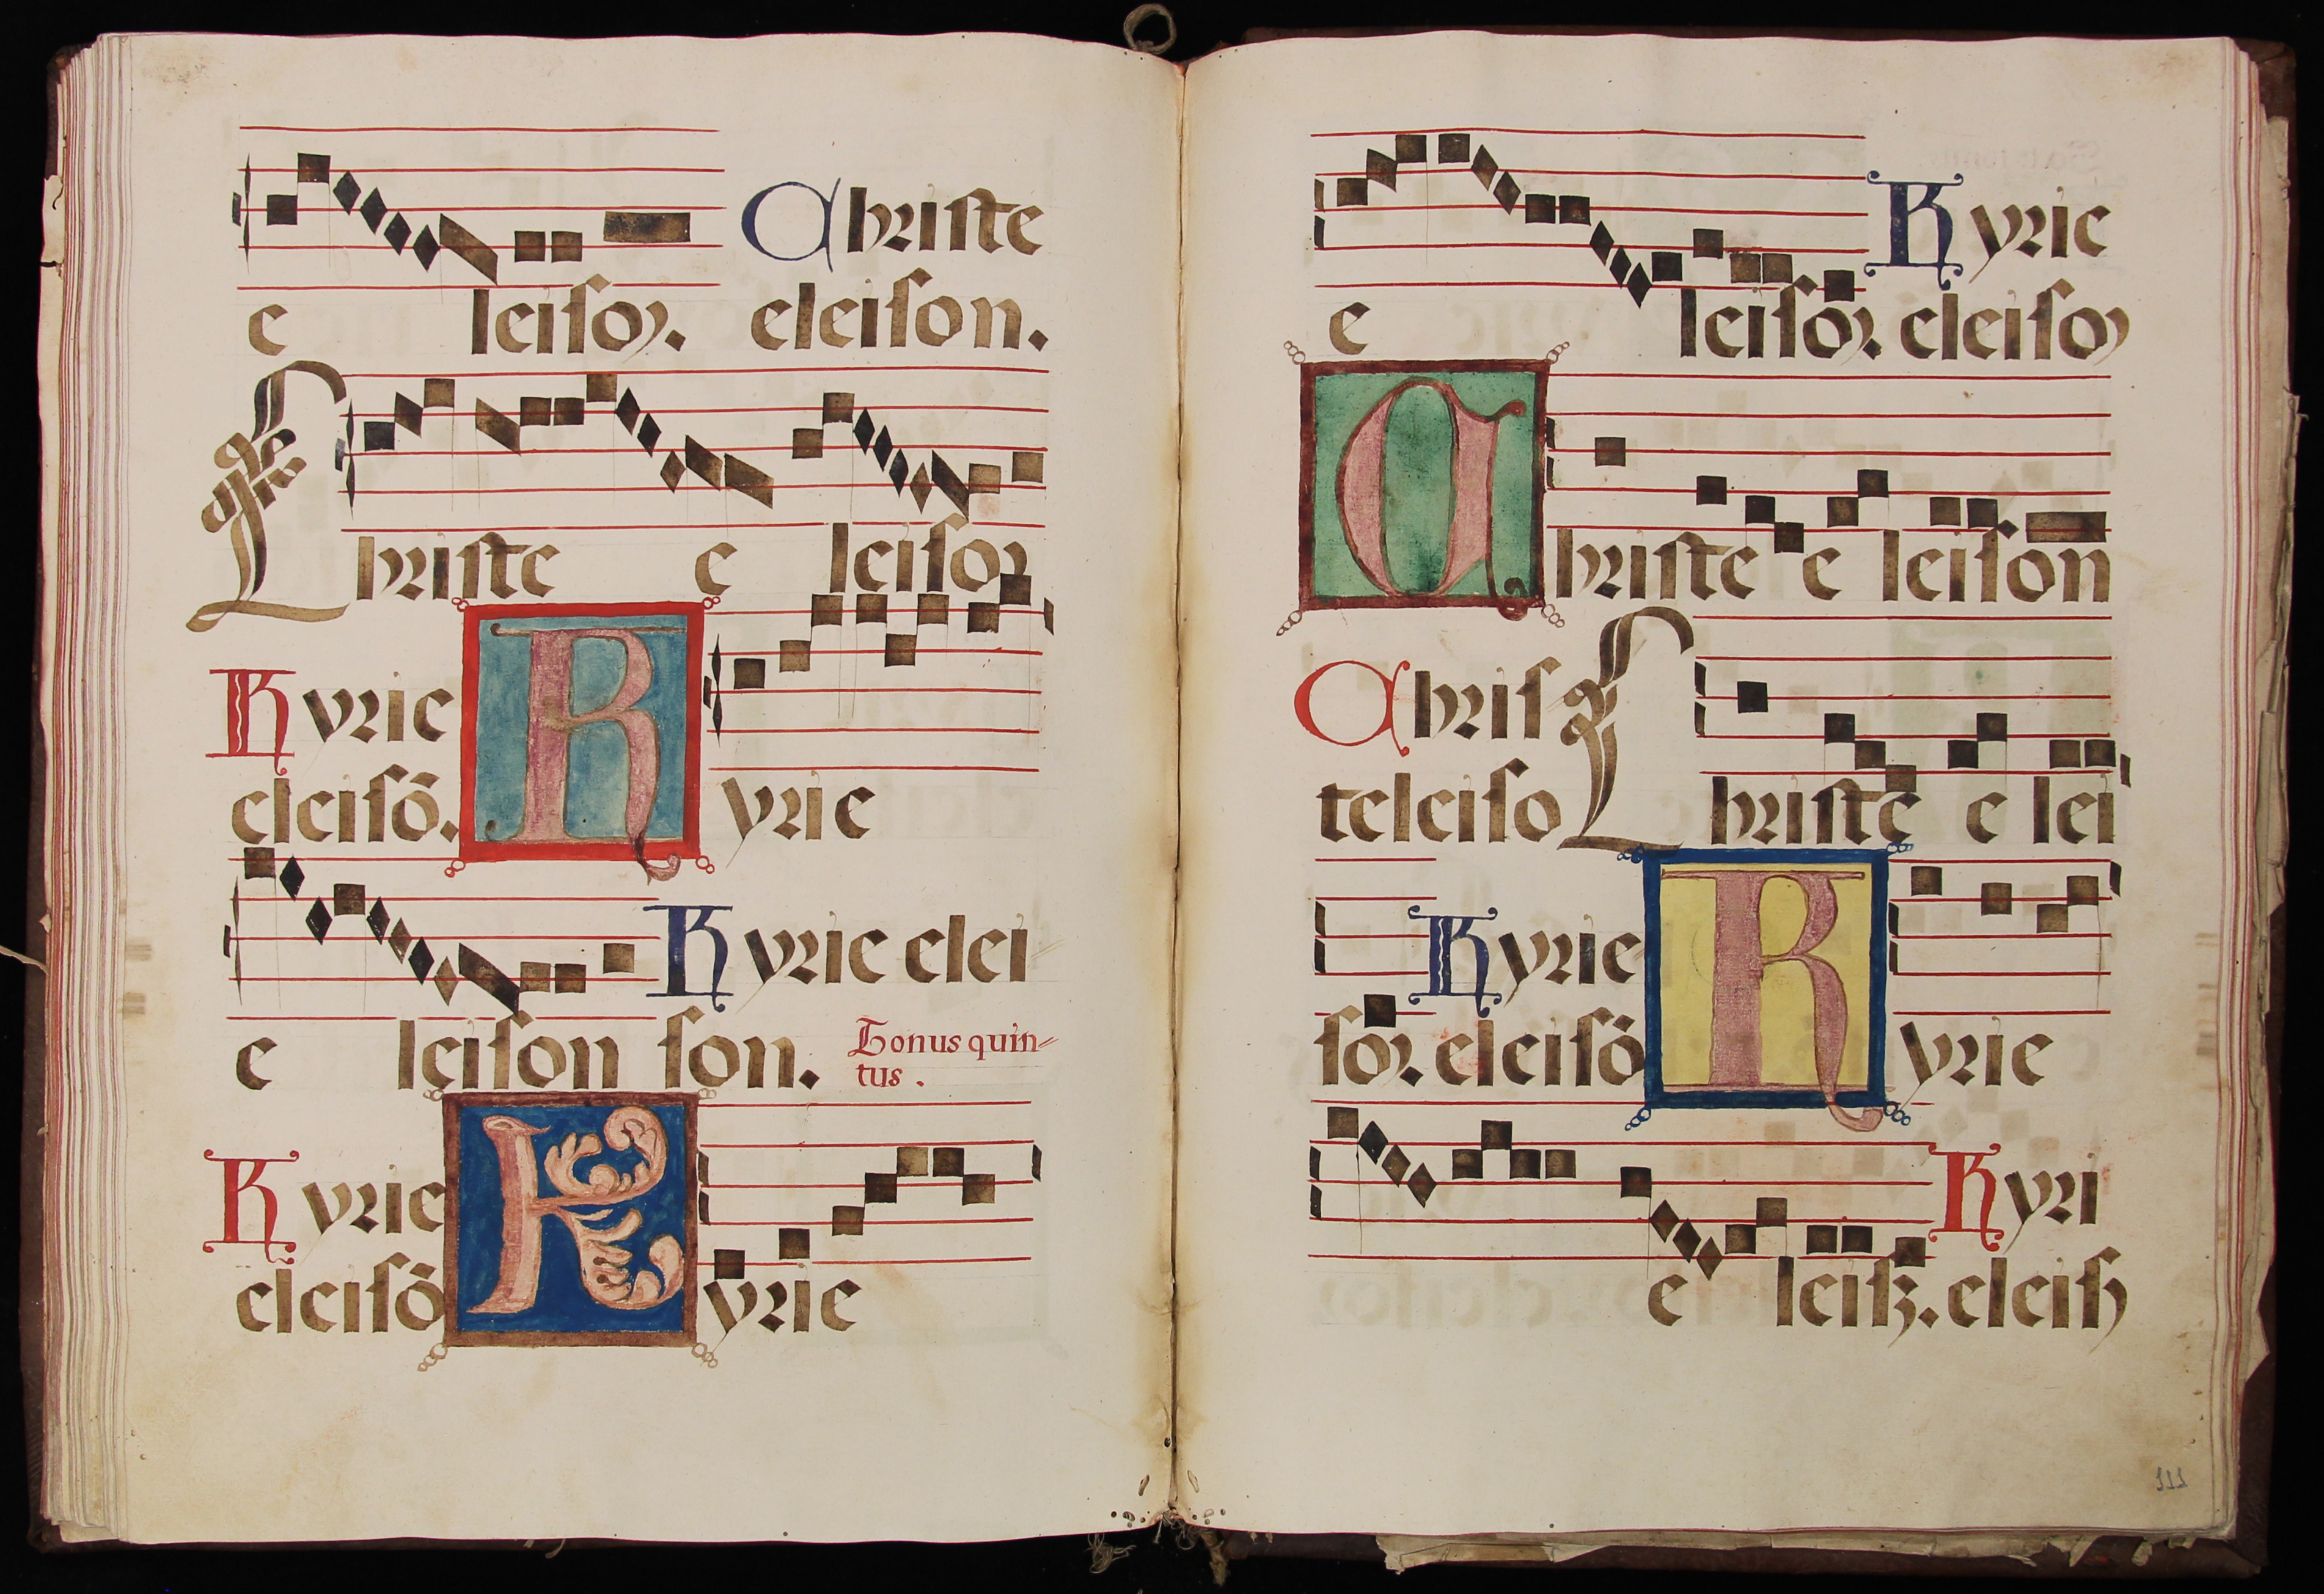 Christe
e leiſoꝛ. eleiſon.
Chriſte e leiſoꝛ
Kyrie
eleiſō. Kyrie
Kyrie elei-
e leiſon ſon. Tonus quin-
tus.
Kyrie
eleiſō Kyrie
Kyrie
e leiſoꝛ. eleiſoꝛ
Chriſte e leiſon
Chriſ
teleiſo Chriſte e lei
Kyrie
ſoꝛ. eleiſō Kyrie
Kyri
e leiſꝫ. eleiſꝫ
111